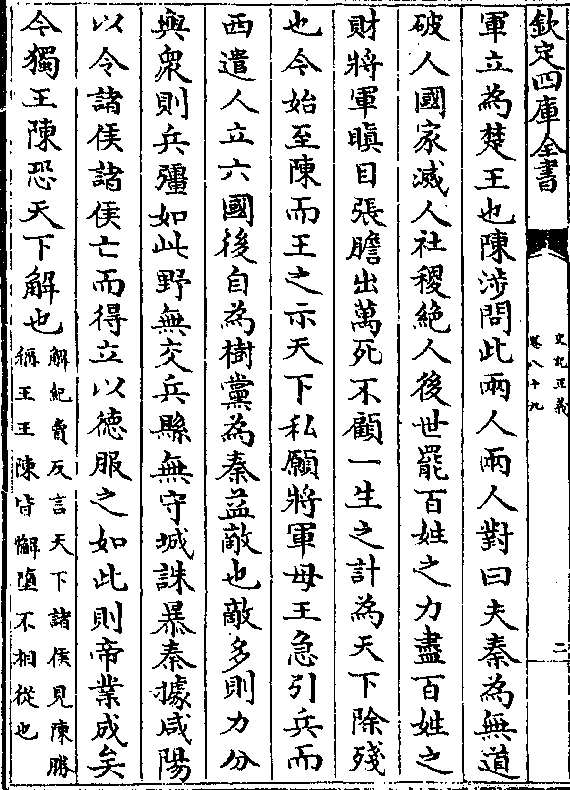 欽定四庫全書
史記正義
卷八十九
二
軍立為楚王也陳涉問此兩人兩人對曰夫秦為無道
破人國家滅人社稷絶人後世罷百姓之力盡百姓之
財將軍瞋目張膽出萬死不顧一生之計為天下除殘
也今始至陳而王之示天下私願將軍毋王急引兵而
西遣人立六國後自為樹黨為秦益敵也敵多則力分
與衆則兵彊如此野無交兵縣無守城誅暴秦據咸陽
以令諸侯諸侯亡而得立以德服之如此則帝業成矣
今獨王陳恐天下解也
解紀賣反言天下諸侯見陳勝
稱王王陳皆懈墮不相從也